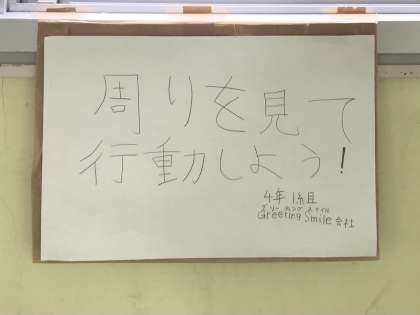 周りを見て
行動しよう!
4年1組
グリーティングスマイル
Greeting Smile会社